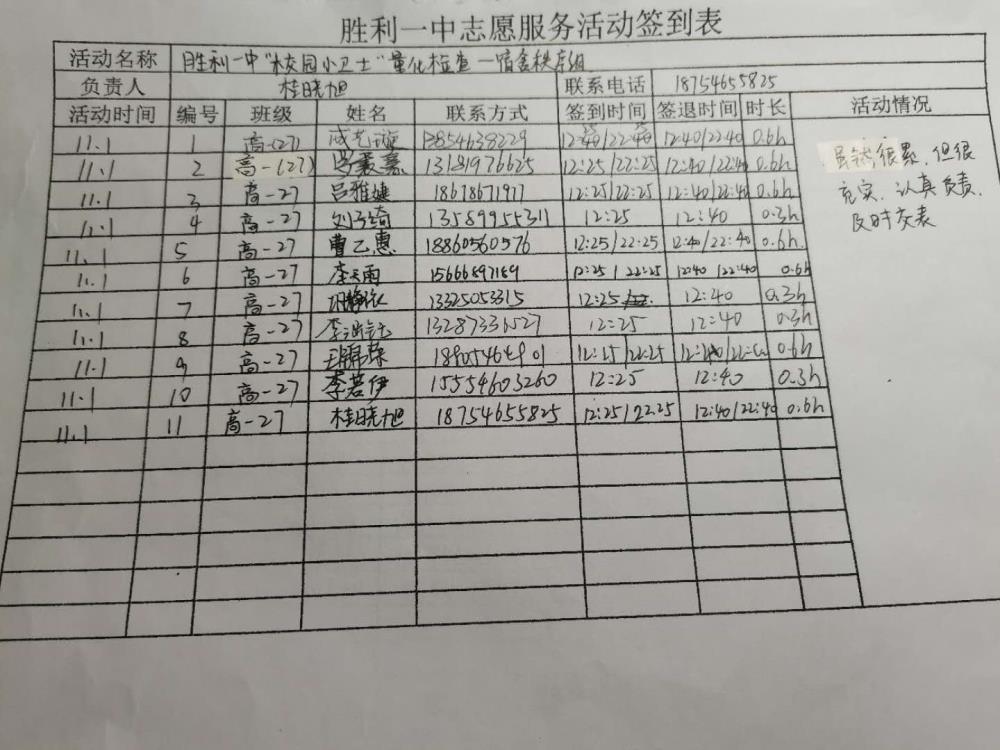 胜利一中志愿服务活动签到表
活动名称 胜利一中"校园小卫士"量化检查—宿舍秩序组
负责人 桂晓旭 联系电话 18754655825
活动时间 编号 班级 姓名 联系方式 签到时间 签退时间 时长 活动情况
11.1 1 高一(27) 成艺璇 13854638229 12:40/22:40 0.6h
11.1 2 高一(27) 13181976625 12:25/22:25 12:40/22:40 0.6h
11.1 3 高一27 吕雅婕 18678671917 12:25/22:25 12:40/22:40 0.6h
11.1 4 高一27 刘子绮 13589955311 12:25 12:40 0.3h
11.1 5 高一27 曹乙惠 18860560576 12:25/22:25 12:40/22:40 0.6h
11.1 6 高一27 李天雨 12:25/22:25 12:40/22:40 0.6h
11.1 7 高一27 13325053315 12:25 12:40 0.3h
11.1 8 高一27 12:25 12:40 0.3h
11.1 9 高一27 12:25/22:25 0.6h
11.1 10 高一27 李若伊 15554603260 12:25 12:40 0.3h
11.1 11 高一27 桂晓旭 18754655825 12:25/22:25 12:40/22:40 0.6h
虽然很累,但很
充实,认真负责,
及时交表